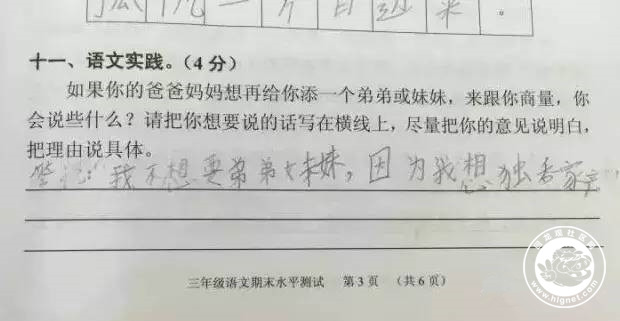 一个自起来。
十一、语文实践。（4分）
如果你的爸爸妈妈想再给你添一个弟弟或妹妹，来跟你商量，你
会说些什么？请把你想要说的话写在横线上，尽量把你的意见说明白，
把理由说具体。
我不想要弟弟妹妹，因为我想独吞家产
三年级语文期末水平测试 第3页 （共6页）
www.hlgnet.com